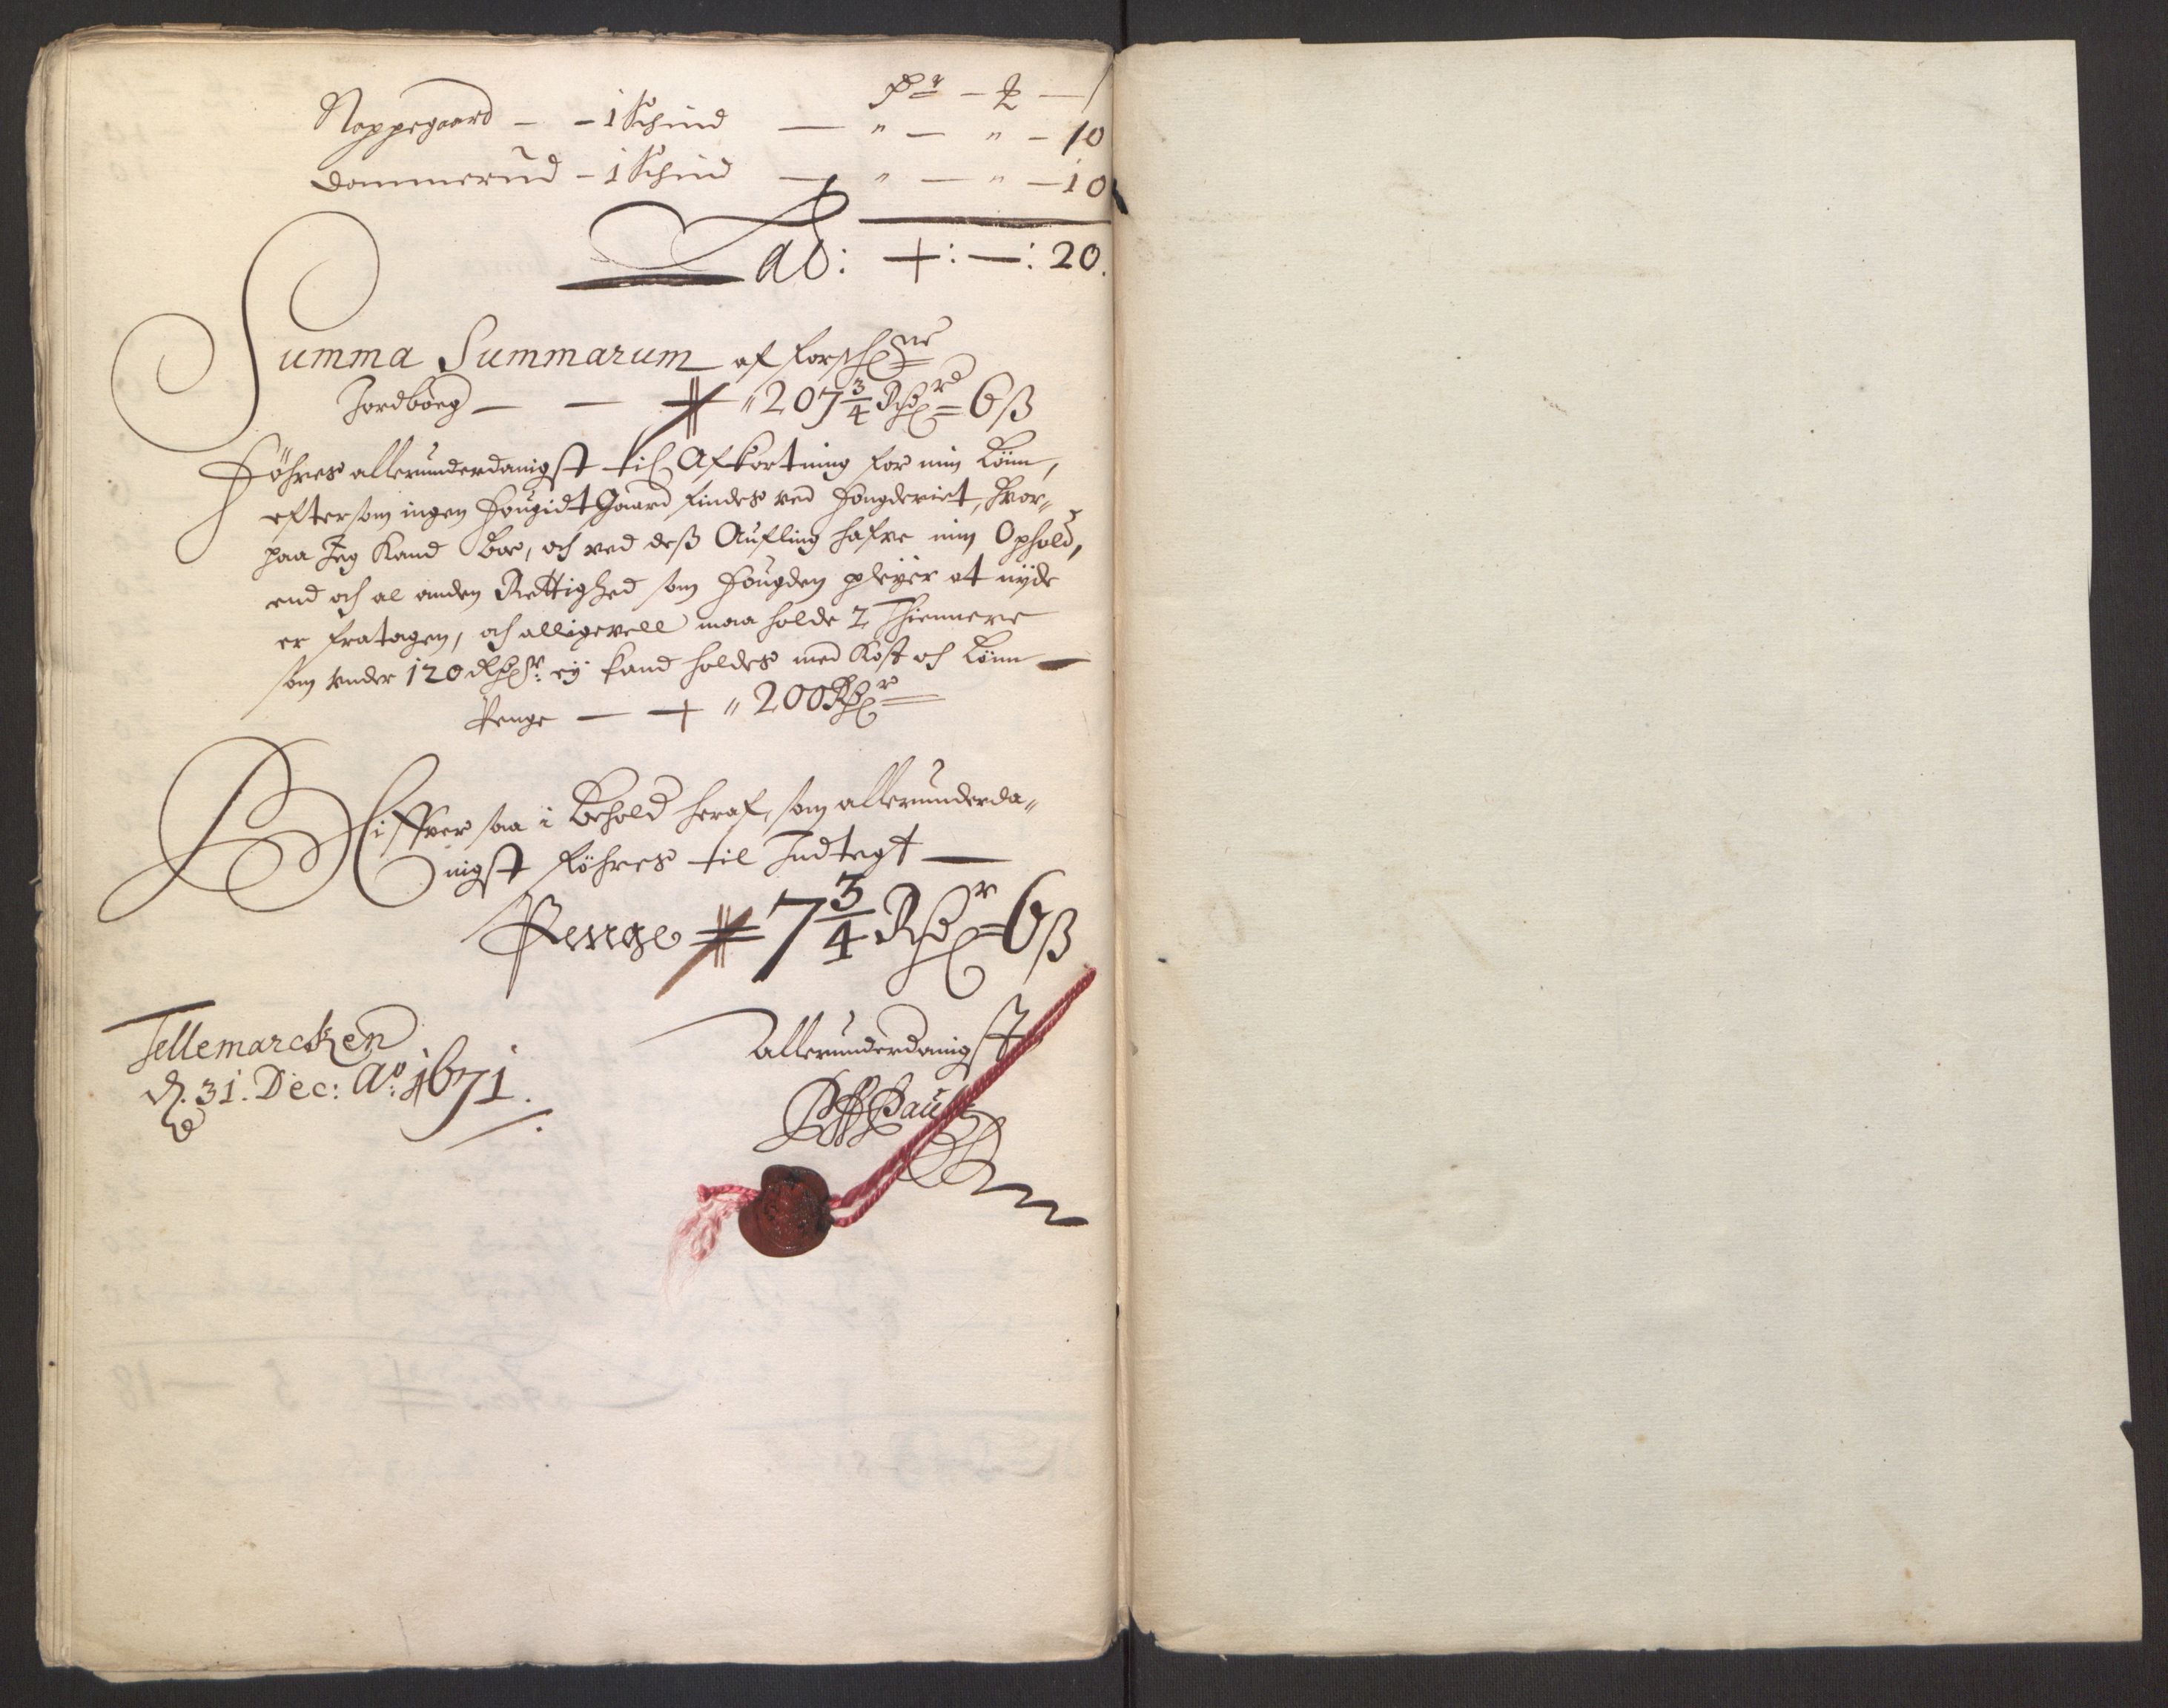 Rdr — ₰ — /
Noppegaard — – 1 Schind — " — " — 10
Dommerud – 1 Schind — " — " — 10
Ab: +: —: 20.
Summa Summarum af forschne
Jordbog — — + " 207 3/4 Rdr 6 ß
Föhres allerunderdanigst til Afkortning for min Lönn,
eftersom ingen fougidt Gaard findes ved fougderiet, hvor-
paa Jeg Kand boe, och ved dess Aufling hafve min Ophold,
end och al anden Rettighed som fougden pleyer at nyde
er fratagen, och alligevell maa holde 2 Thiennere
som under 120 Rdr: ey kand holdes med Kost och Lönn —
Penge — + " 200 Rdr
Bliffver saa i Behold heraf, som allerunderda-
nigst föhres til Indtegt —
Penge + 7 3/4 Rdr 6 ß
Tellemarcken
d. 31. Dec: Ao: 1671.
Allerunderdanigst
Paust